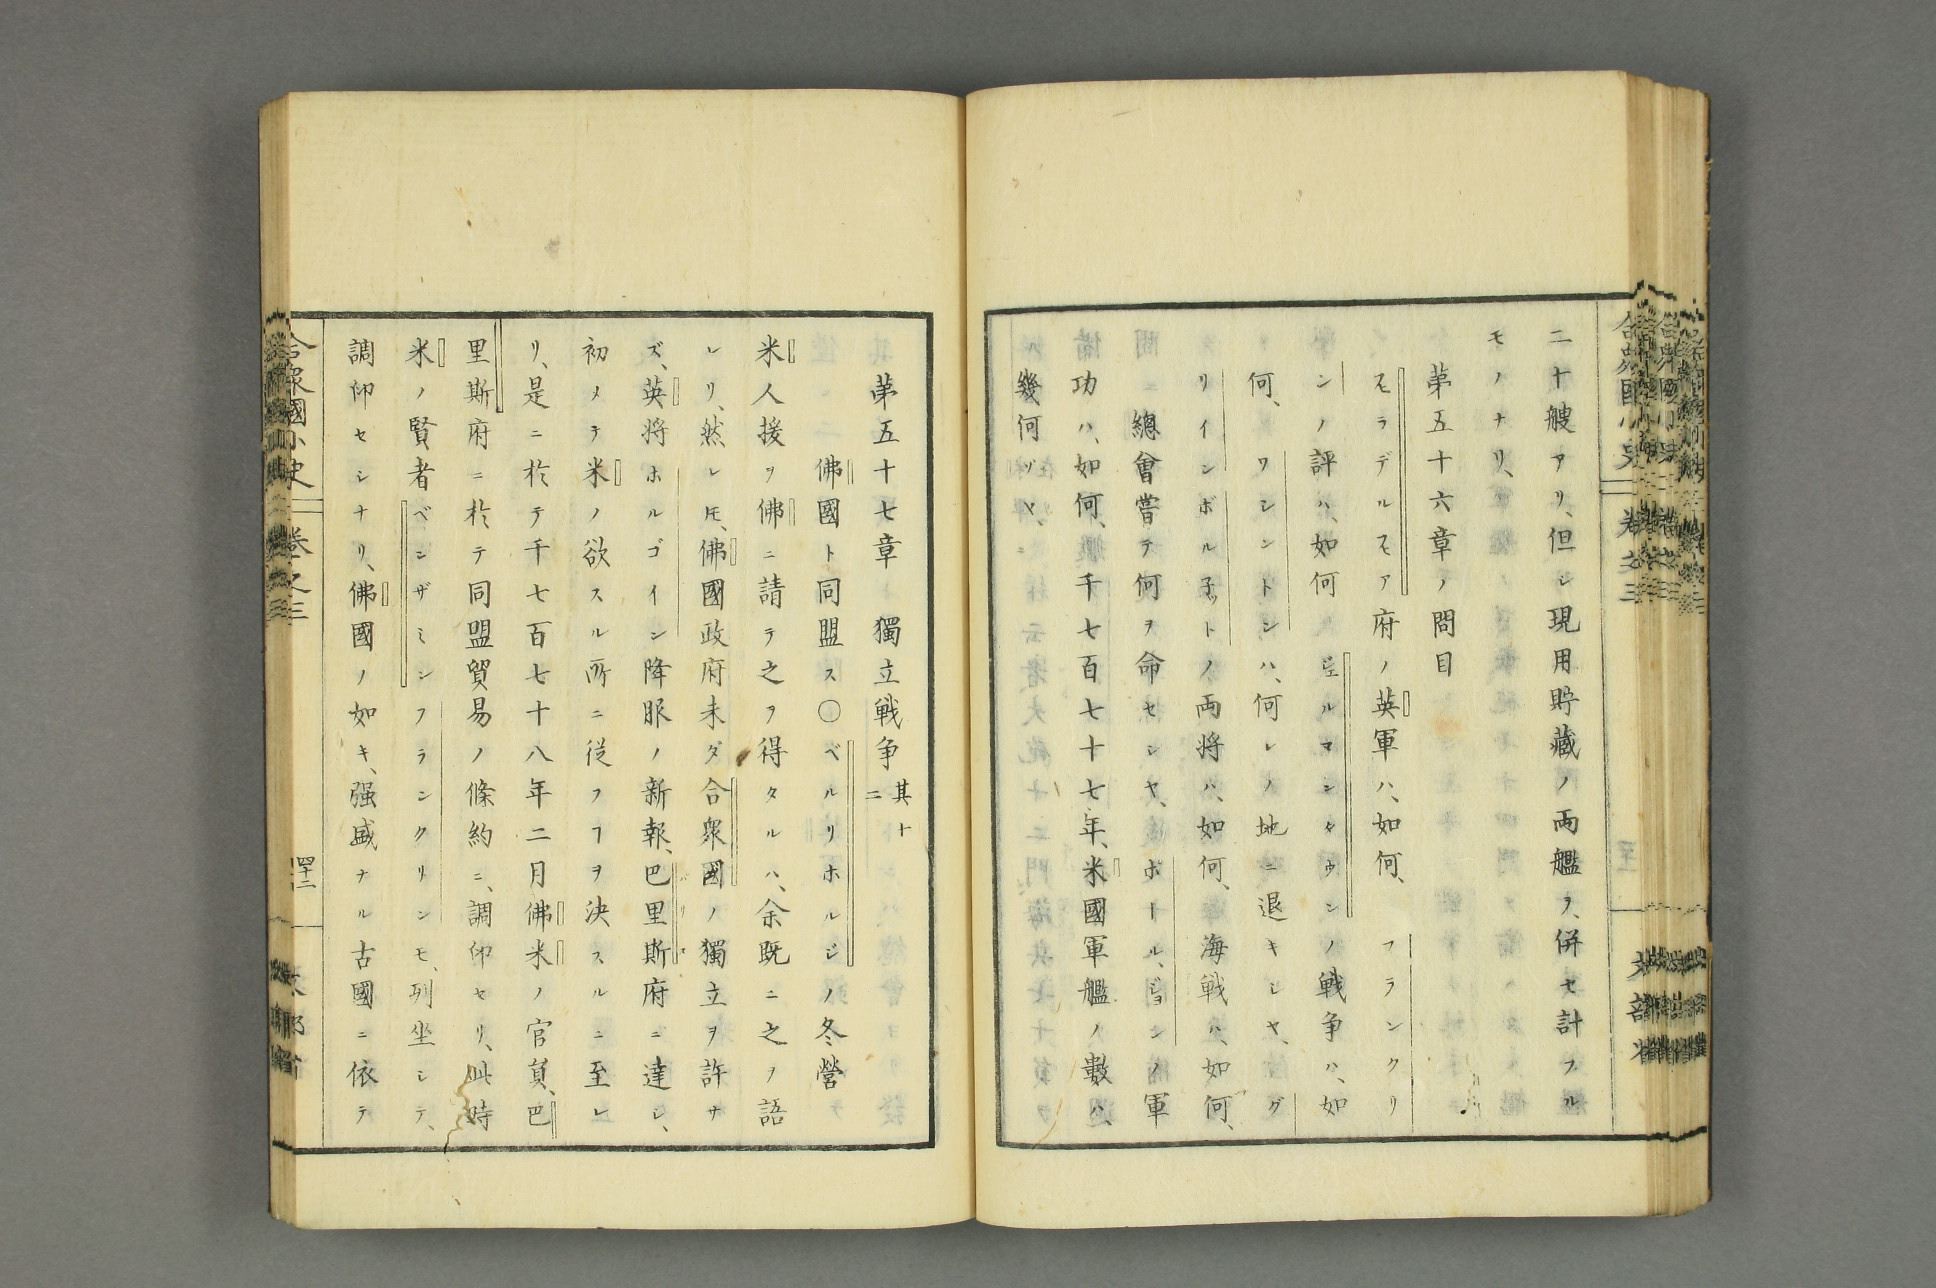 二十艘アリ、但シ現用貯藏ノ両艦ヲ、併セ計フル
モノナリ、
第五十六章ノ問目
モラデルモア府ノ英軍ハ、如何、フランクリ
ンノ評ハ、如何ゼルマンタウンノ戦争ハ、如
何、ワシントンハ、何レノ地ニ退キシヤ、グ
リインボル子ットノ両将ハ、如何、海戦ハ、如何、
總會嘗テ何ヲ命セシヤ、ポール、ジョンノ軍
功ハ、如何、千七百七十七年、米國軍艦ノ數ハ、
幾何ゾヤ、
第五十七章 獨立戦争 其十二
佛國ト同盟ス〇ベルリホルジノ冬營
米人援ヲ佛ニ請テ之ヲ得タルハ、余既ニ之ヲ語
レリ、然レ𪜈、佛國政府未ダ合衆國ノ獨立ヲ許サ
ズ、英将ホルゴイン降服ノ新報、巴里斯府ニ達シ、
初メテ米ノ欲スル所ニ從フヿヲ決スルニ至レ
リ、是ニ於テ千七百七十八年二月佛米ノ官員、巴
里斯府ニ於テ同盟貿易ノ條約ニ、調印セリ、此時
米ノ賢者ベンザミンフランクリンモ、列坐シテ、
調印セシナリ、佛國ノ如キ、强盛ナル古國ニ依テ
合衆國小史 卷之三 四十二